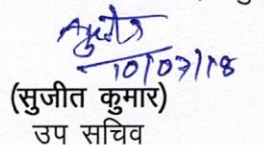 10/07/18
(सुजीत कुमार)
उप सचिव